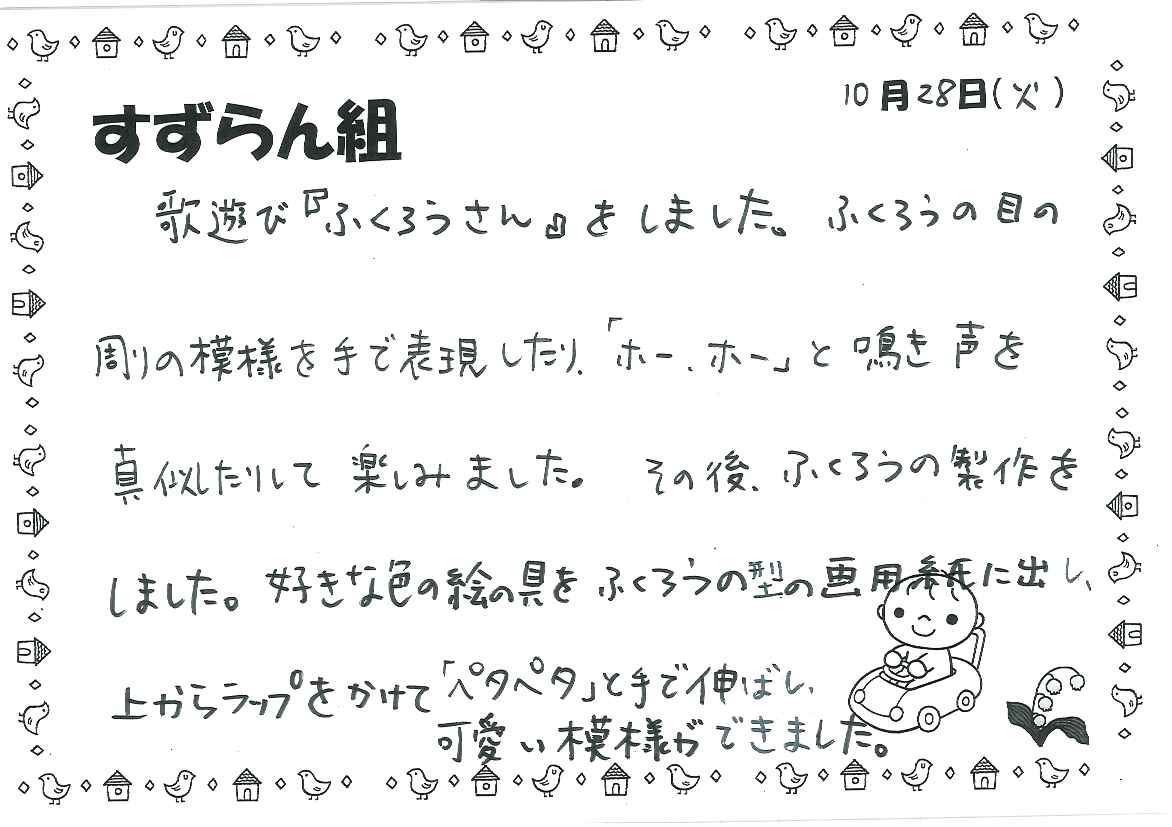 10月28日(火)
すずらん組
歌遊び『ふくろうさん』をしました。ふくろうの目の
周りの模様を手で表現したり、「ホー、ホー」と鳴き声を
真似したりして楽しみました。その後、ふくろうの製作を
しました。好きな色の絵の具をふくろうの型の画用紙に出し、
上からラップをかけて「ペタペタ」と手で伸ばし、
可愛い模様ができました。